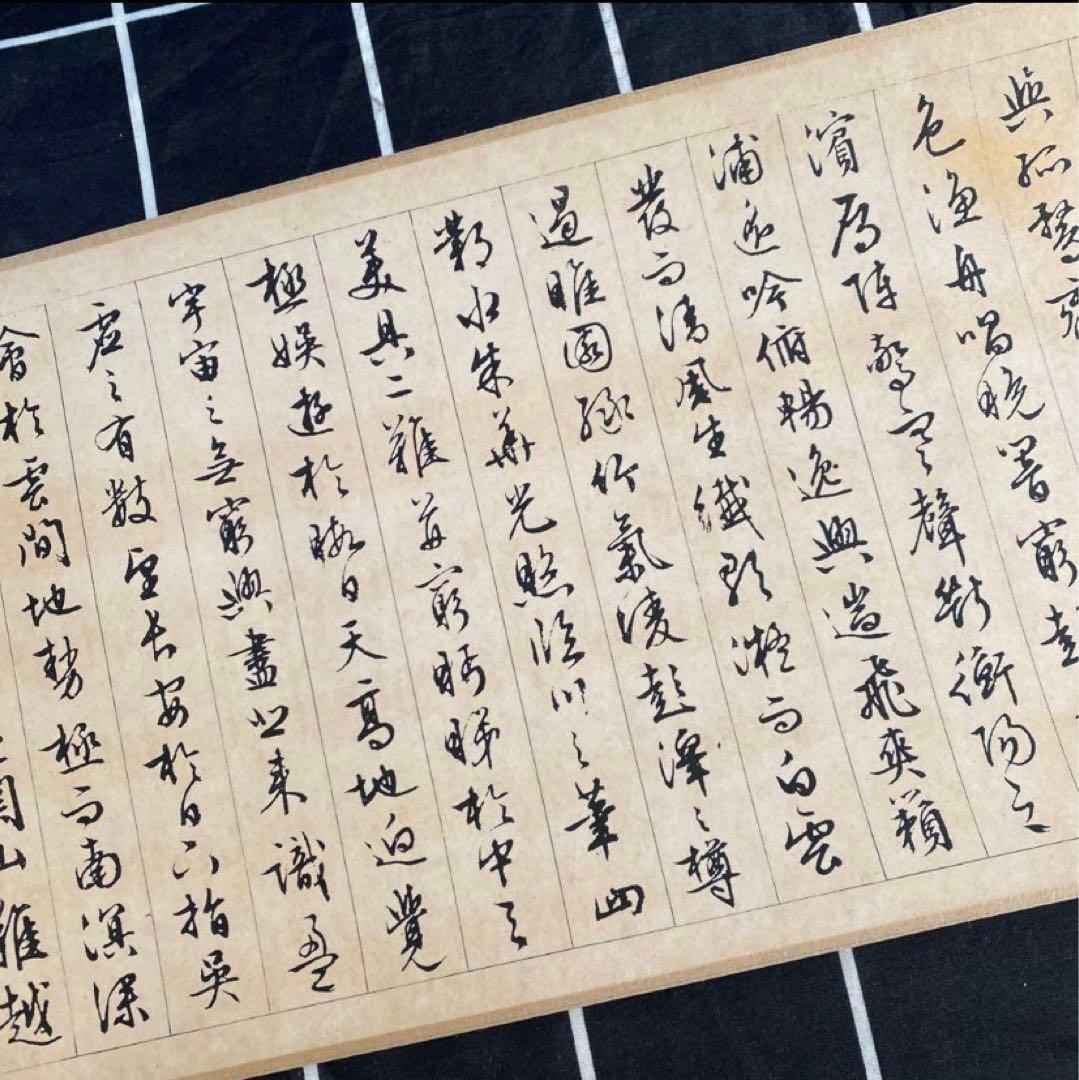 與孤鶩齊
色漁舟唱晚響窮彭
濱鴈陣驚寒聲斷衡陽之
浦遙吟俯暢逸興遄飛爽籟
發而清風生纖歌凝而白雲
遏睢園綠竹氣凌彭澤之樽
鄴水朱華光照臨川之筆四
美具二難并窮眄睇於中天
極娛遊於暇日天高地迥覺
宇宙之無窮興盡悲來識盈
虛之有數望長安於日下指吳
會於雲間地勢極而南溟深
關山難越